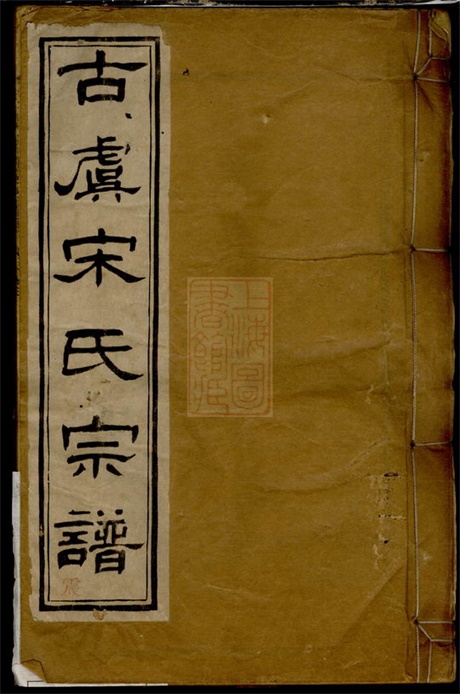 古虞宋氏宗譜
上海圖
書館藏